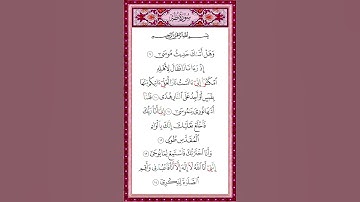 بِسْمِ اللَّهِ الرَّحْمَٰنِ الرَّحِيمِ
وَهَلْ أَتَىٰكَ حَدِيثُ مُوسَىٰ ٩
إِذْ رَءَا نَارًا فَقَالَ لِأَهْلِهِ
ٱمْكُثُوٓا۟ إِنِّىٓ ءَانَسْتُ نَارًا لَّعَلِّىٓ ءَاتِيكُم مِّنْهَا
بِقَبَسٍ أَوْ أَجِدُ عَلَى ٱلنَّارِ هُدًى ١٠ فَلَمَّآ
أَتَىٰهَا نُودِىَ يَٰمُوسَىٰٓ ١١ إِنِّىٓ أَنَا۠ رَبُّكَ
فَٱخْلَعْ نَعْلَيْكَ إِنَّكَ بِٱلْوَادِ
ٱلْمُقَدَّسِ طُوًى ١٢
وَأَنَا ٱخْتَرْتُكَ فَٱسْتَمِعْ لِمَا يُوحَىٰٓ ١٣
إِنَّنِىٓ أَنَا ٱللَّهُ لَآ إِلَٰهَ إِلَّآ أَنَا۠ فَٱعْبُدْنِى وَأَقِمِ
ٱلصَّلَوٰةَ لِذِكْرِىٓ ١٤